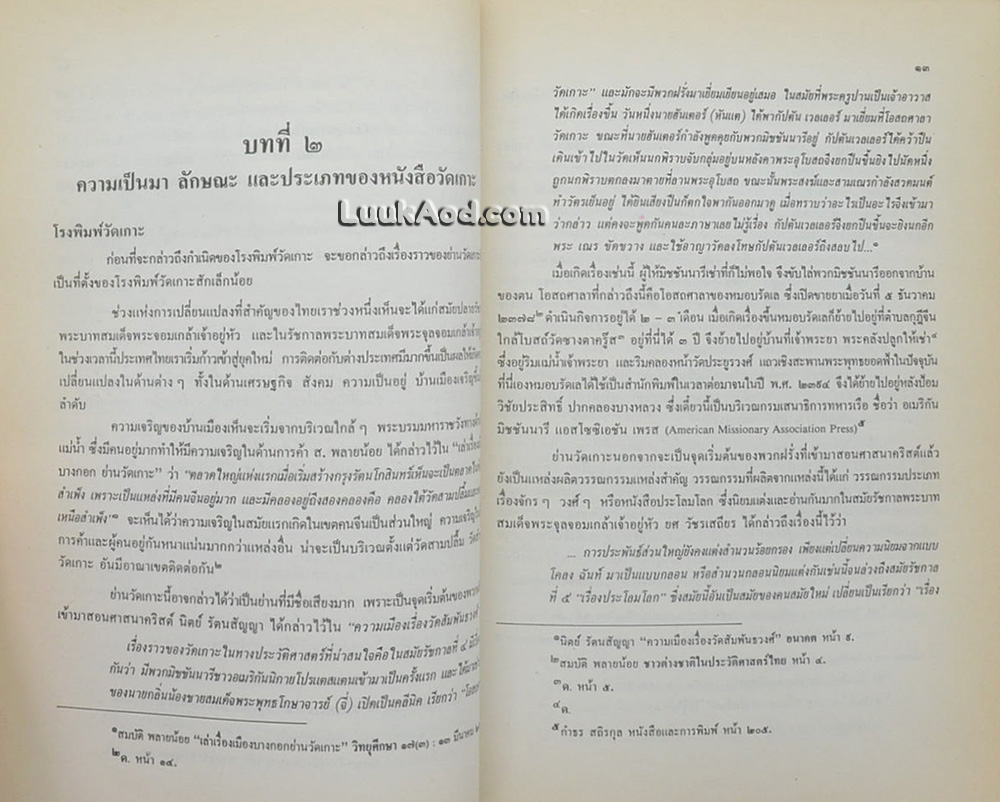 บทที่ ๒
ความเป็นมา ลักษณะ และประเภทของหนังสือวัดเกาะ
LuukAod.com
โรงพิมพ์วัดเกาะ
ก่อนที่จะกล่าวถึงกำเนิดของโรงพิมพ์วัดเกาะ จะขอกล่าวถึงเรื่องราวของย่านวัดเกาะ
เป็นที่ตั้งของโรงพิมพ์วัดเกาะสักเล็กน้อย
ช่วงแห่งการเปลี่ยนแปลงที่สำคัญของไทยเราช่วงหนึ่งเห็นจะได้แก่สมัยปลาย
พระบาทสมเด็จพระจอมเกล้าเจ้าอยู่หัว และในรัชกาลพระบาทสมเด็จพระจุลจอมเกล้าเจ้า
ในช่วงเวลานี้ประเทศไทยเราเริ่มก้าวเข้าสู่ยุคใหม่ การติดต่อกับต่างประเทศมีมากขึ้นเป็นผลให้
เปลี่ยนแปลงในด้านต่าง ๆ ทั้งในด้านเศรษฐกิจ สังคม ความเป็นอยู่ บ้านเมืองเจริญขึ้น
ลำดับ
ความเจริญของบ้านเมืองเห็นจะเริ่มจากบริเวณใกล้ ๆ พระบรมมหาราชวังทาง
แม่น้ำ ซึ่งมีคนอยู่มากทำให้มีความเจริญในด้านการค้า ส. พลายน้อย ได้กล่าวไว้ใน "เล่าเรื่อง
บางกอก ย่านวัดเกาะ" ว่า "ตลาดใหญ่แห่งแรกเมื่อเริ่มสร้างกรุงรัตนโกสินทร์เห็นจะเป็นตลาด
สำเพ็ง เพราะเป็นแหล่งที่มีคนจีนอยู่มาก และมีคลองอยู่ถึงสองคลองคือ คลองใต้วัดสามปลื้ม
เหนือสำเพ็ง"๑ จะเห็นได้ว่าความเจริญในสมัยแรกเกิดในเขตคนจีนเป็นส่วนใหญ่ ความเจริญ
การค้าและผู้คนอยู่กันหนาแน่นมากกว่าแหล่งอื่น น่าจะเป็นบริเวณตั้งแต่วัดสามปลื้ม
วัดเกาะ อันมีอาณาเขตติดต่อกัน๒
ย่านวัดเกาะนี้อาจกล่าวได้ว่าเป็นย่านที่มีชื่อเสียงมาก เพราะเป็นจุดเริ่มต้นของ
เข้ามาสอนศาสนาคริสต์ นิตย์ รัตนสัญญา ได้กล่าวไว้ใน "ความเมืองเรื่องวัดสัมพันธวงศ์"
เรื่องราวของวัดเกาะในทางประวัติศาสตร์ที่น่าสนใจคือในสมัยรัชกาลที่ ๔
กันว่า มีพวกมิชชันนารีชาวอเมริกันนิกายโปรแตสแตนเข้ามาเป็นครั้งแรก และได้มา
ของนายกลิ่นน้องชายสมเด็จพระพุทธโฆษาจารย์ (จี่) เปิดเป็นคลีนิค เรียกว่า "โอสถ
๑สมบัติ พลายน้อย "เล่าเรื่องเมืองบางกอกย่านวัดเกาะ" วิทยุศึกษา ๑๗(๓) : ๑๓ มีนาคม
๒ด. หน้า ๑๔.
๑๓
วัดเกาะ" และมักจะมีพวกฝรั่งมาเยี่ยมเยียนอยู่เสมอ ในสมัยที่พระครูปานเป็นเจ้าอาวาส
ได้เกิดเรื่องขึ้น วันหนึ่งนายฮันเตอร์ (หันแต) ได้พากัปตัน เวลเลอร์ มาเยี่ยมที่โอสถศาลา
วัดเกาะ ขณะที่นายฮันเตอร์กำลังพูดคุยกับพวกมิชชันนารีอยู่ กัปตันเวลเลอร์ได้คว้าปืน
เดินเข้าไปในวัดเห็นนกพิราบจับกลุ่มอยู่บนหลังคาพระอุโบสถจึงยกปืนขึ้นยิงไปนัดหนึ่ง
ถูกนกพิราบตกลงมาตายที่ลานพระอุโบสถ ขณะนั้นพระสงฆ์และสามเณรกำลังสวดมนต์
ทำวัตรเย็นอยู่ ได้ยินเสียงปืนก็ตกใจพากันออกมาดู เมื่อทราบว่าอะไรเป็นอะไรจึงเข้ามา
ว่ากล่าว แต่คงจะพูดกันคนละภาษาเลยไม่รู้เรื่อง กัปตันเวลเลอร์จึงยกปืนขึ้นจะยิงนกอีก
พระ เณร ขัดขวาง และใช้อาญาวัดลงโทษกัปตันเวลเลอร์ถึงสลบไป...๑
เมื่อเกิดเรื่องเช่นนี้ ผู้ให้มิชชันนารีเช่าที่ก็ไม่พอใจ จึงขับไล่พวกมิชชันนารีออกจากบ้าน
ของตน โอสถศาลาที่กล่าวถึงนี้คือโอสถศาลาของหมอบรัดเล ซึ่งเปิดขายยาเมื่อวันที่ ๕ ธันวาคม
๒๓๗๘๒ ดำเนินกิจการอยู่ได้ ๒ – ๓ เดือน เมื่อเกิดเรื่องขึ้นหมอบรัดเลก็ย้ายไปอยู่ที่ตำบลกุฎีจีน
ใกล้โบสถ์วัดซางตาครู้ส๓ อยู่ที่นี่ได้ ๓ ปี จึงย้ายไปอยู่บ้านที่เจ้าพระยา พระคลังปลูกให้เช่า๔
ซึ่งอยู่ริมแม่น้ำเจ้าพระยา และริมคลองหน้าวัดประยูรวงศ์ แถวเชิงสะพานพระพุทธยอดฟ้าในปัจจุบัน
ที่นี่เองหมอบรัดเลได้ใช้เป็นสำนักพิมพ์ในเวลาต่อมาจนในปี พ.ศ. ๒๓๙๔ จึงได้ย้ายไปอยู่หลังป้อม
วิชัยประสิทธิ์ ปากคลองบางหลวง ซึ่งเดี๋ยวนี้เป็นบริเวณกรมเสนาธิการทหารเรือ ชื่อว่า อเมริกัน
มิชชันนารี แอสโซซิเอชัน เพรส (American Missionary Association Press)๕
ย่านวัดเกาะนอกจากจะเป็นจุดเริ่มต้นของพวกฝรั่งที่เข้ามาสอนศาสนาคริสต์แล้ว
ยังเป็นแหล่งผลิตวรรณกรรมแหล่งสำคัญ วรรณกรรมที่ผลิตจากแหล่งนี้ได้แก่ วรรณกรรมประเภท
เรื่องจักร ๆ วงศ์ ๆ หรือหนังสือประโลมโลก ซึ่งนิยมแต่งและอ่านกันมากในสมัยรัชกาลพระบาท
สมเด็จพระจุลจอมเกล้าเจ้าอยู่หัว ยศ วัชรเสถียร ได้กล่าวถึงเรื่องนี้ไว้ว่า
... การประพันธ์ส่วนใหญ่ยังคงแต่งสำนวนร้อยกรอง เพียงแต่เปลี่ยนความนิยมจากแบบ
โคลง ฉันท์ มาเป็นแบบกลอน หรือสำนวนกลอนนิยมแต่งกันเช่นนี้จนล่วงถึงสมัยรัชกาล
ที่ ๕ "เรื่องประโลมโลก" ซึ่งสมัยนี้อันเป็นสมัยของคนสมัยใหม่ เปลี่ยนเป็นเรียกว่า "เรื่อง
๑นิตย์ รัตนสัญญา "ความเมืองเรื่องวัดสัมพันธวงศ์" อนาคต หน้า ๙.
๒สมบัติ พลายน้อย ชาวต่างชาติในประวัติศาสตร์ไทย หน้า ๔.
๓ด. หน้า ๕.
๔ด.
๕กำธร สถิรกุล หนังสือและการพิมพ์ หน้า ๒๐๕.